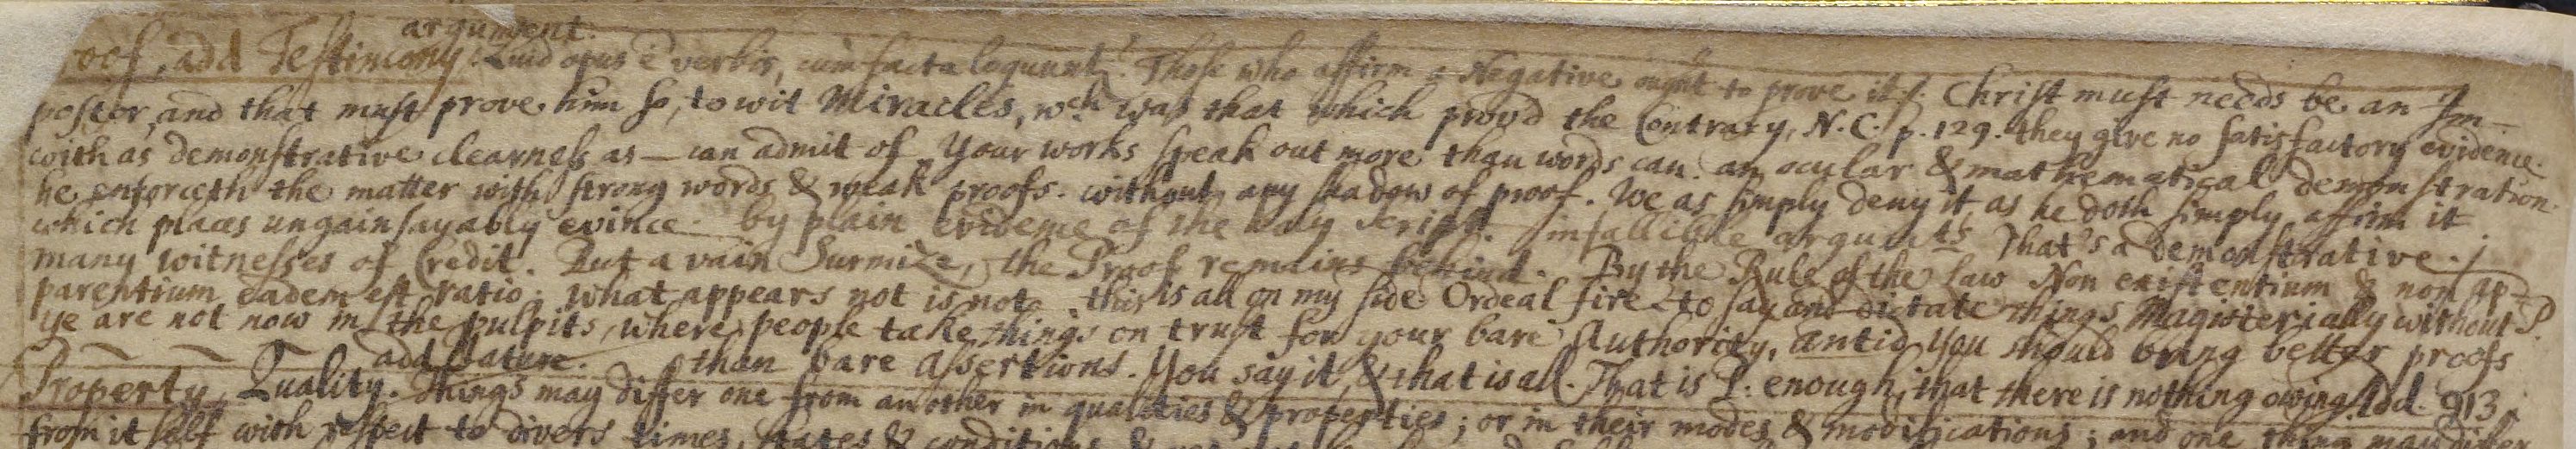 argument.
oof, add Testimony. Quid opus ē verbis, cum facta loquunt? Those who affirm a Negative ought to prove it. Christ must needs be an Im-
postor, and that must prove him so, to wit Miracles, wch was that which prov'd the Contrary, N.C. p. 129. they give no satisfactory evidence.
with as demonstrative clearness as — can admit of Your works speak out more than words can. an ocular & mathematical demonstration.
he enforceth the matter with strong words & weak proofs. without any shadow of proof. We as simply deny it, as he doth simply affirm it
which places ungainsayably evince. by plain evidence of the holy Script. infallible argumts That's a demonstrative.
many witnesses of Credit. But a vain Surmize, the Proof remains behind. By the Rule of the Law Non existentium & non ap-
parentium eadem est ratio. what appears not is not. this is all on my side Ordeal fire to say and dictate things Magisterially without P.
ye are not now in the pulpits, where people take things on trust for your bare Authority, You should bring better proofs
add Nature. than bare assertions. You say it, & that is all. That is P. enough, that there is nothing owing. Add. 913
Property, Quality. Things may differ one from another in qualities & properties; or in their modes & modifications; and one thing may differ
from it self with respect to divers times, states & conditions